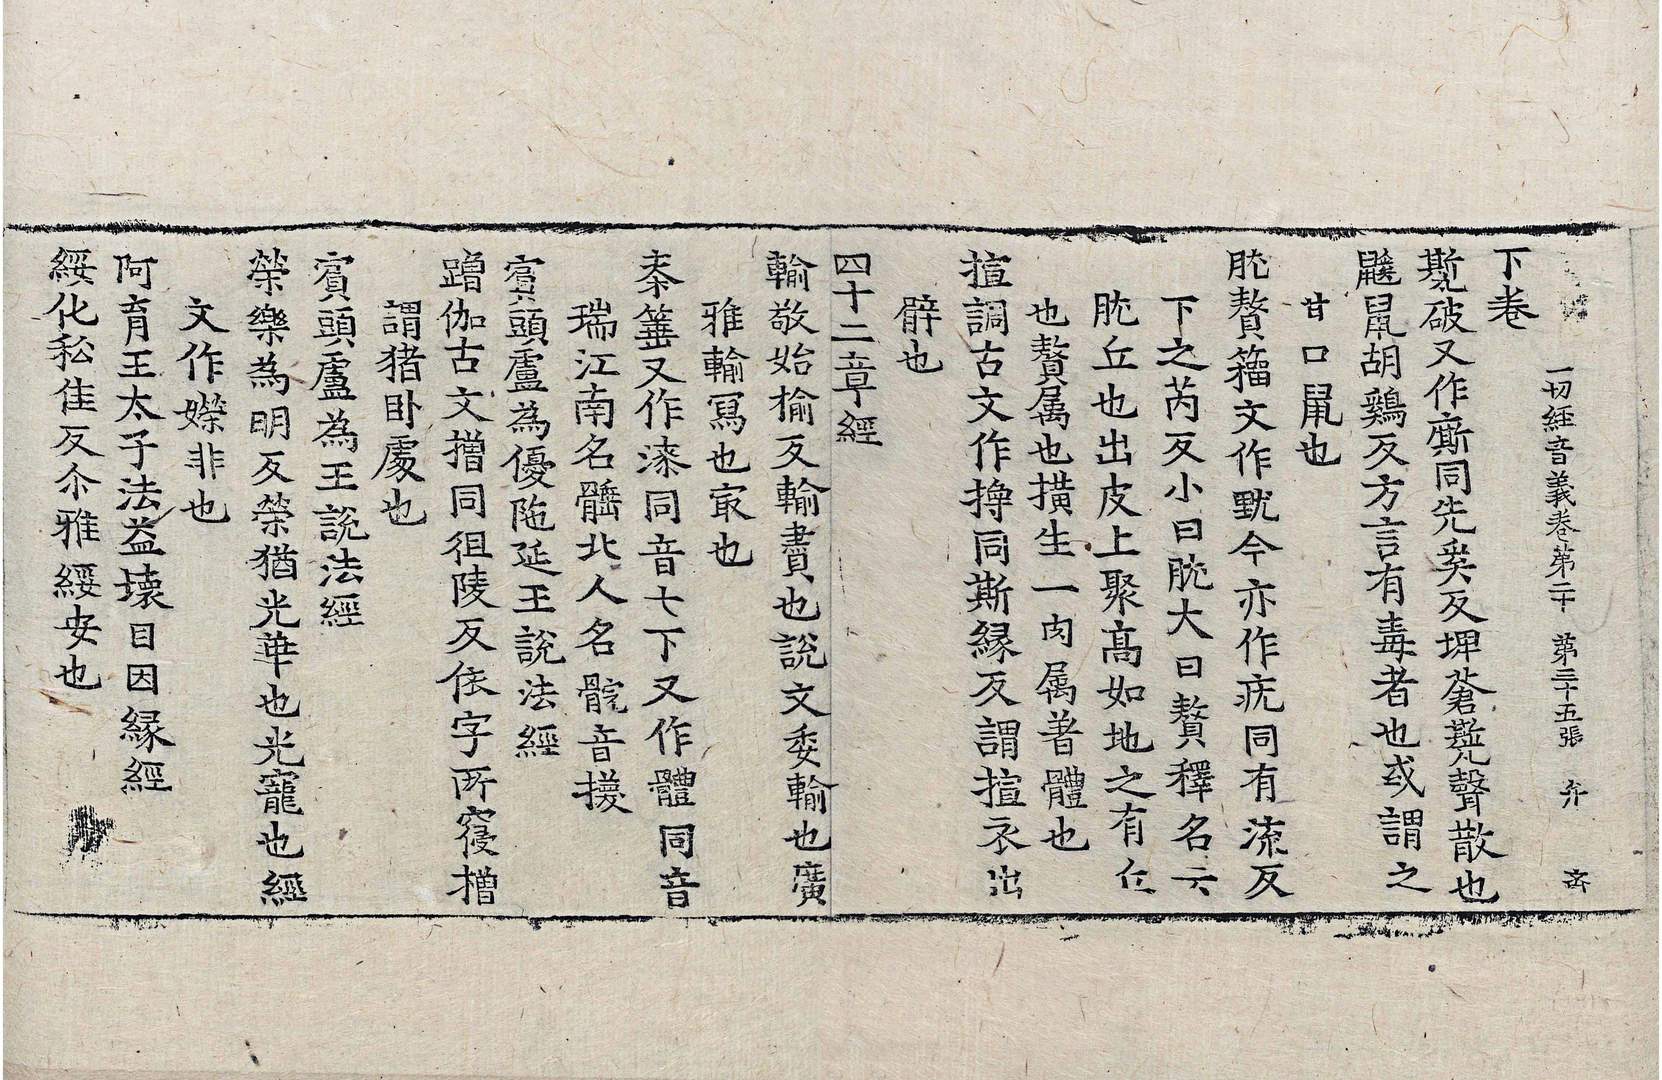 一切經音義卷第二十 第三十五張 弁
下卷
㽄破又作廝同先奚反埤蒼㽄聲散也
鼷鼠胡鷄反方言有毒者也或謂之
甘口鼠也
肬贅籀文作䵳今亦作疣同有流反
下之芮反小曰肬大曰贅釋名云
肬丘也出皮上聚髙如地之有丘
也贅属也撗生一肉属著體也
揎調古文作㨄同斯縁反謂揎衣出
臂也
四十二章經
輸敬始榆反輸賣也說文委輸也廣
雅輸寫也㝡也
桼篳又作漆同音七下又作體同音
瑞江南名䯝北人名䯘音援
賓頭盧為優陁延王說法經
蹭伽古文橧同徂陵反依字所寑橧
謂猪卧處也
賓頭盧為王說法經
榮樂為明反榮猶光華也光寵也經
文作嬫非也
阿育王太子法益壞目因縁經
綏化私隹反尒雅綏安也